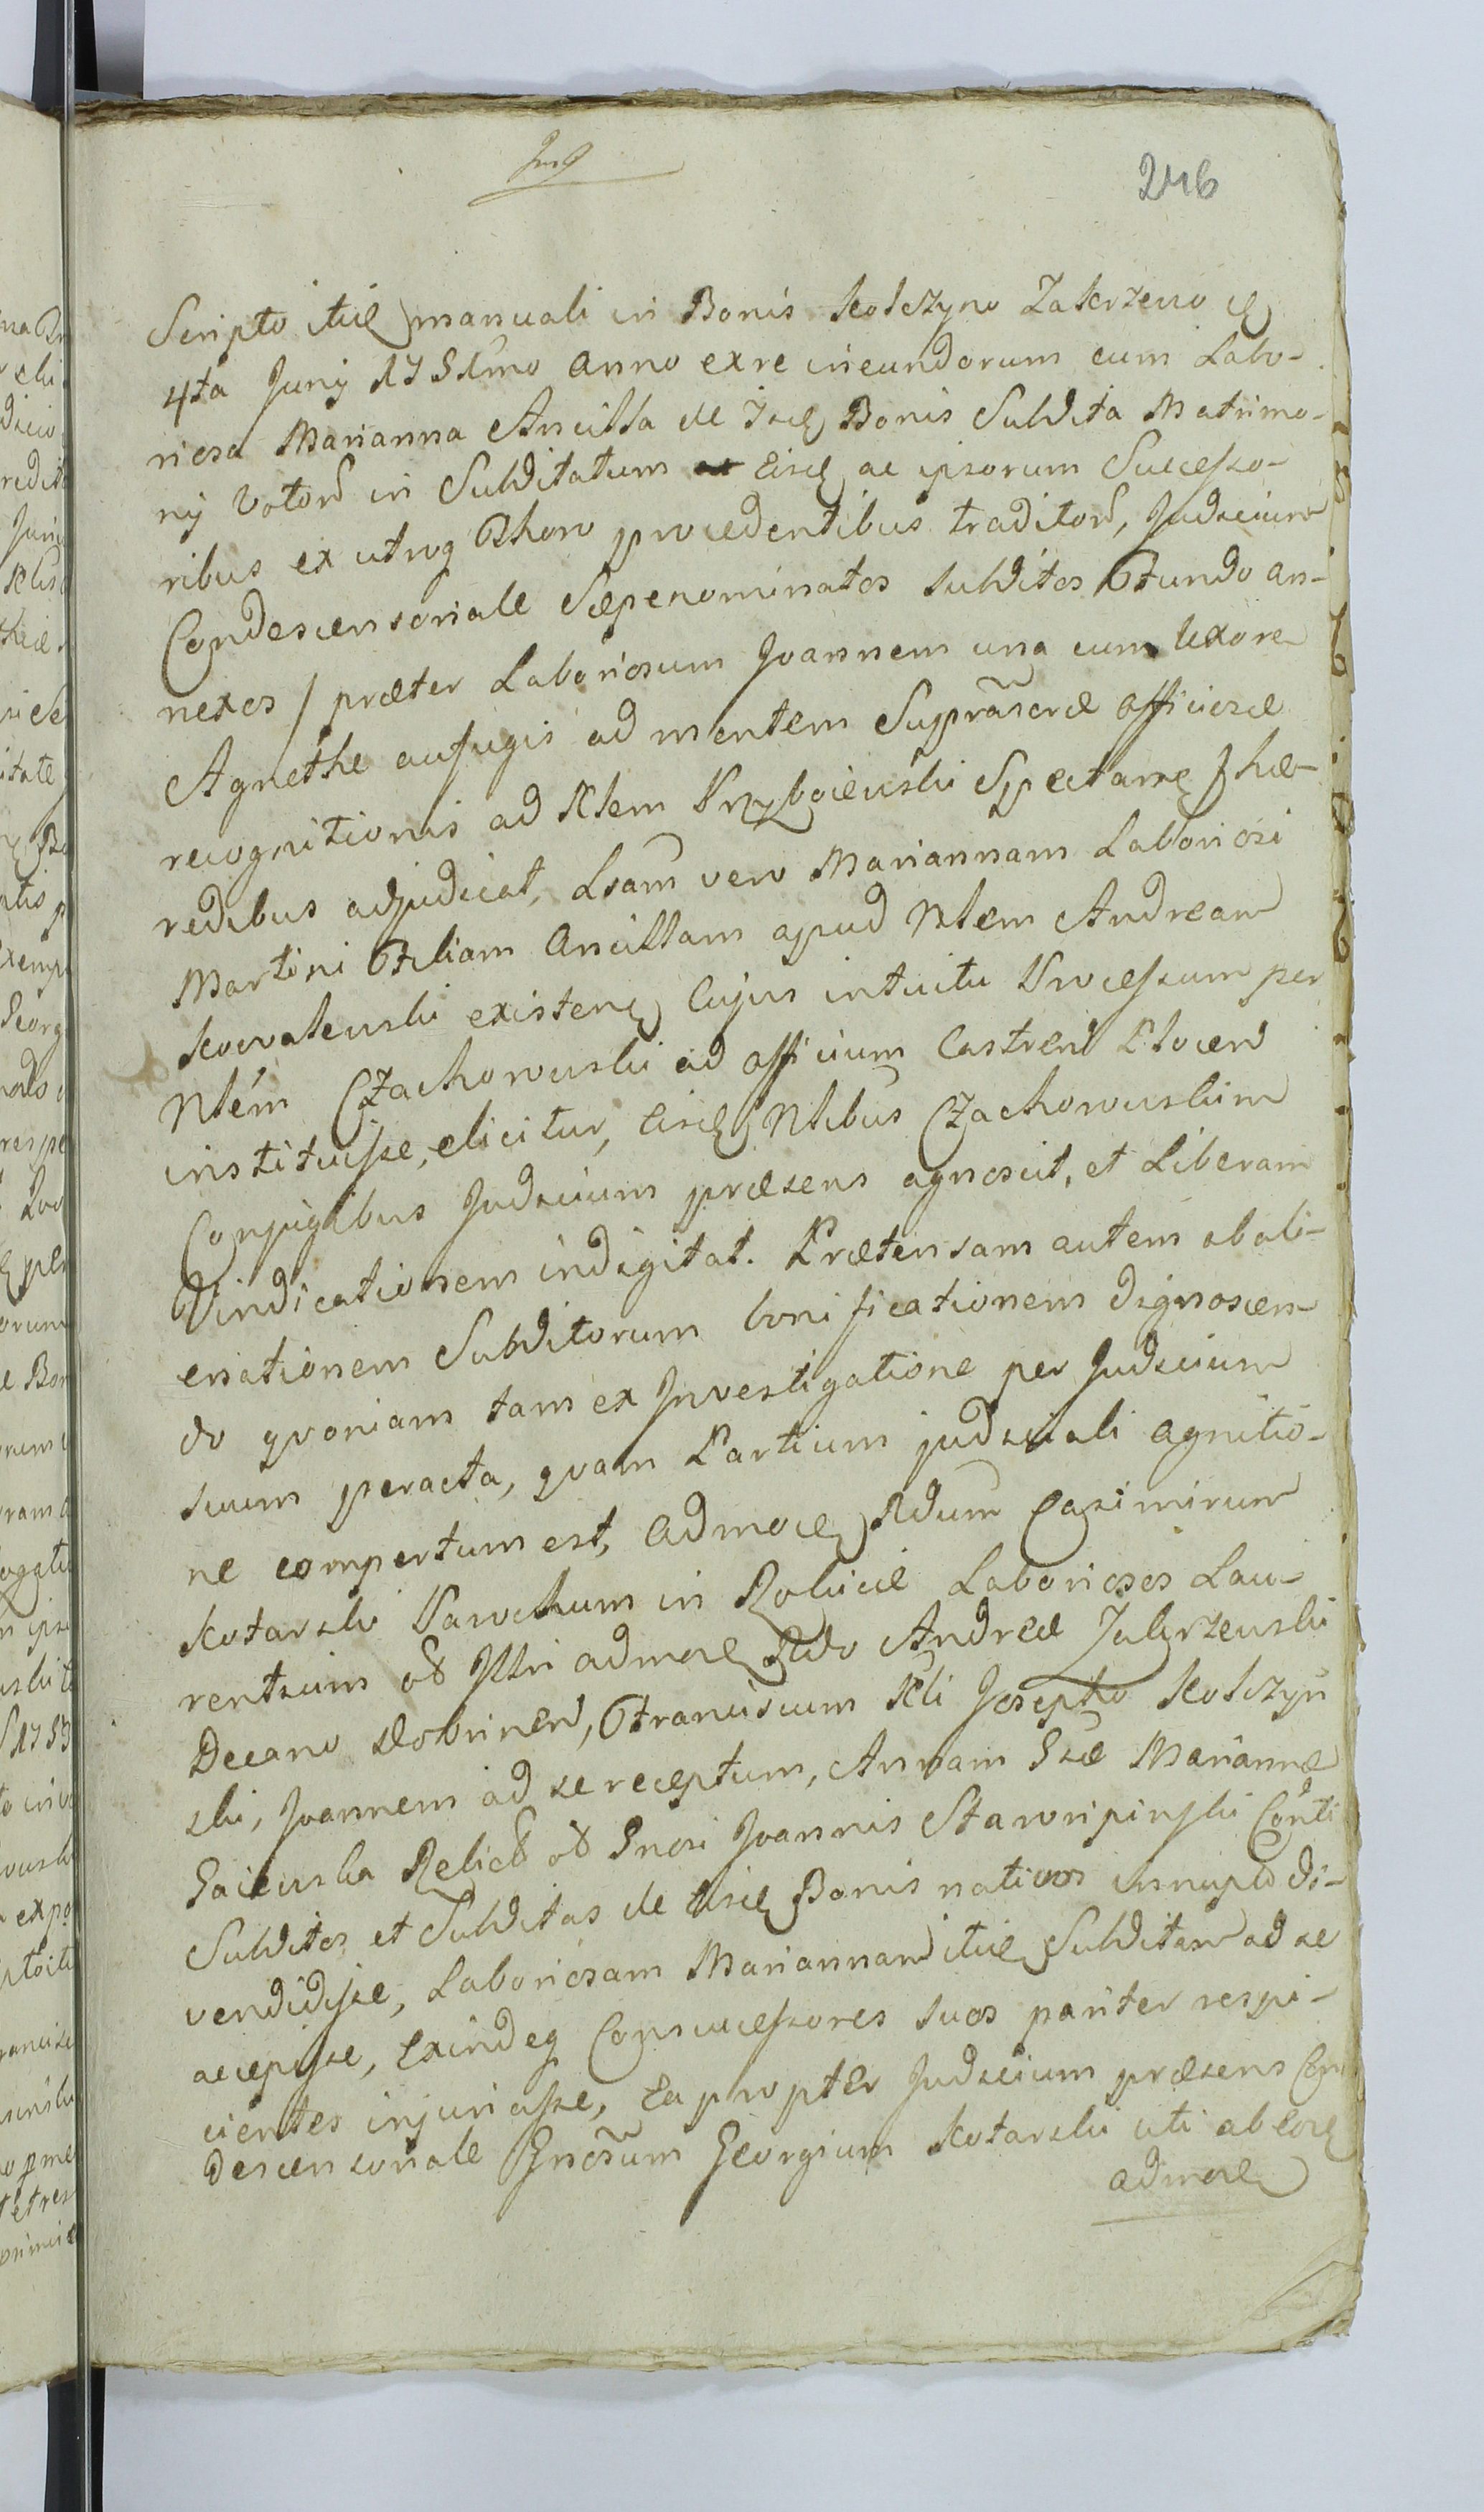 246
Scripto itid manuali in Bonis Kolczyno Zakrzewo d
4ta Junij Anno ex re ineundorum cum Labo-
riosa Marianna Ancilla de Iisd Bonis Subdita Matrimo-
nij Votorũ in Subditatum Eisd ac ipsorum Successo-
ribus ex utroq Thoro procedentibus traditorũ, Judicium
Condescensoriale Sæpenominatos subditos Fundo an-
nexos / præter Laboriosum Joannem una cum Uxore
Agnethe aufugis ad mentem Supra officiosæ
recognitionis ad Spectan / hæ-
redibus adjudicat, vero Mariannam Laboriosi
Martini Filiam Ancillam apud Nlem Andream
Kowalewski existen Cujus intuitu Processum per
Nlem Czachorowski ad officium Castren Plocen
instituisse, elicitur, Eisd Nlibus Czachorowskim
Conjugibus Judicium præsens agnoscit, et Liberam
Vindicationem indigitat. Prætensam autem abali-
enationem Subditorum bonificationem dignoscen-
do qvoniam tam ex Investigatione per Judicium
suum peracta, qvam Partium judiciali agnitio-
ne compertum est, Admod Rdum Casimirum
Kotarski Parochum in Rokicie Laboriosos Lau-
rentium Illri admod Rdo Andreæ Zakrzewski
Decano Dobrinen, Franciscum Josepho Kolczyn
ski, Joannem ad se receptum, Annam Gsæ Mariannæ
Gaiewska Relict Gnosi Joannis Staworipinski
Subditos et Subditas de Eisd Bonis nativos di-
vendidisse, Laboriosam Mariannam itid Subditam ad se
accepisse, Exindeq Consuccessores suos pariter respi-
cientes injuriasse, Ea propter Judicium præsens Con
descensoriale Gnosum Georgium Kotarski uti ab
admod